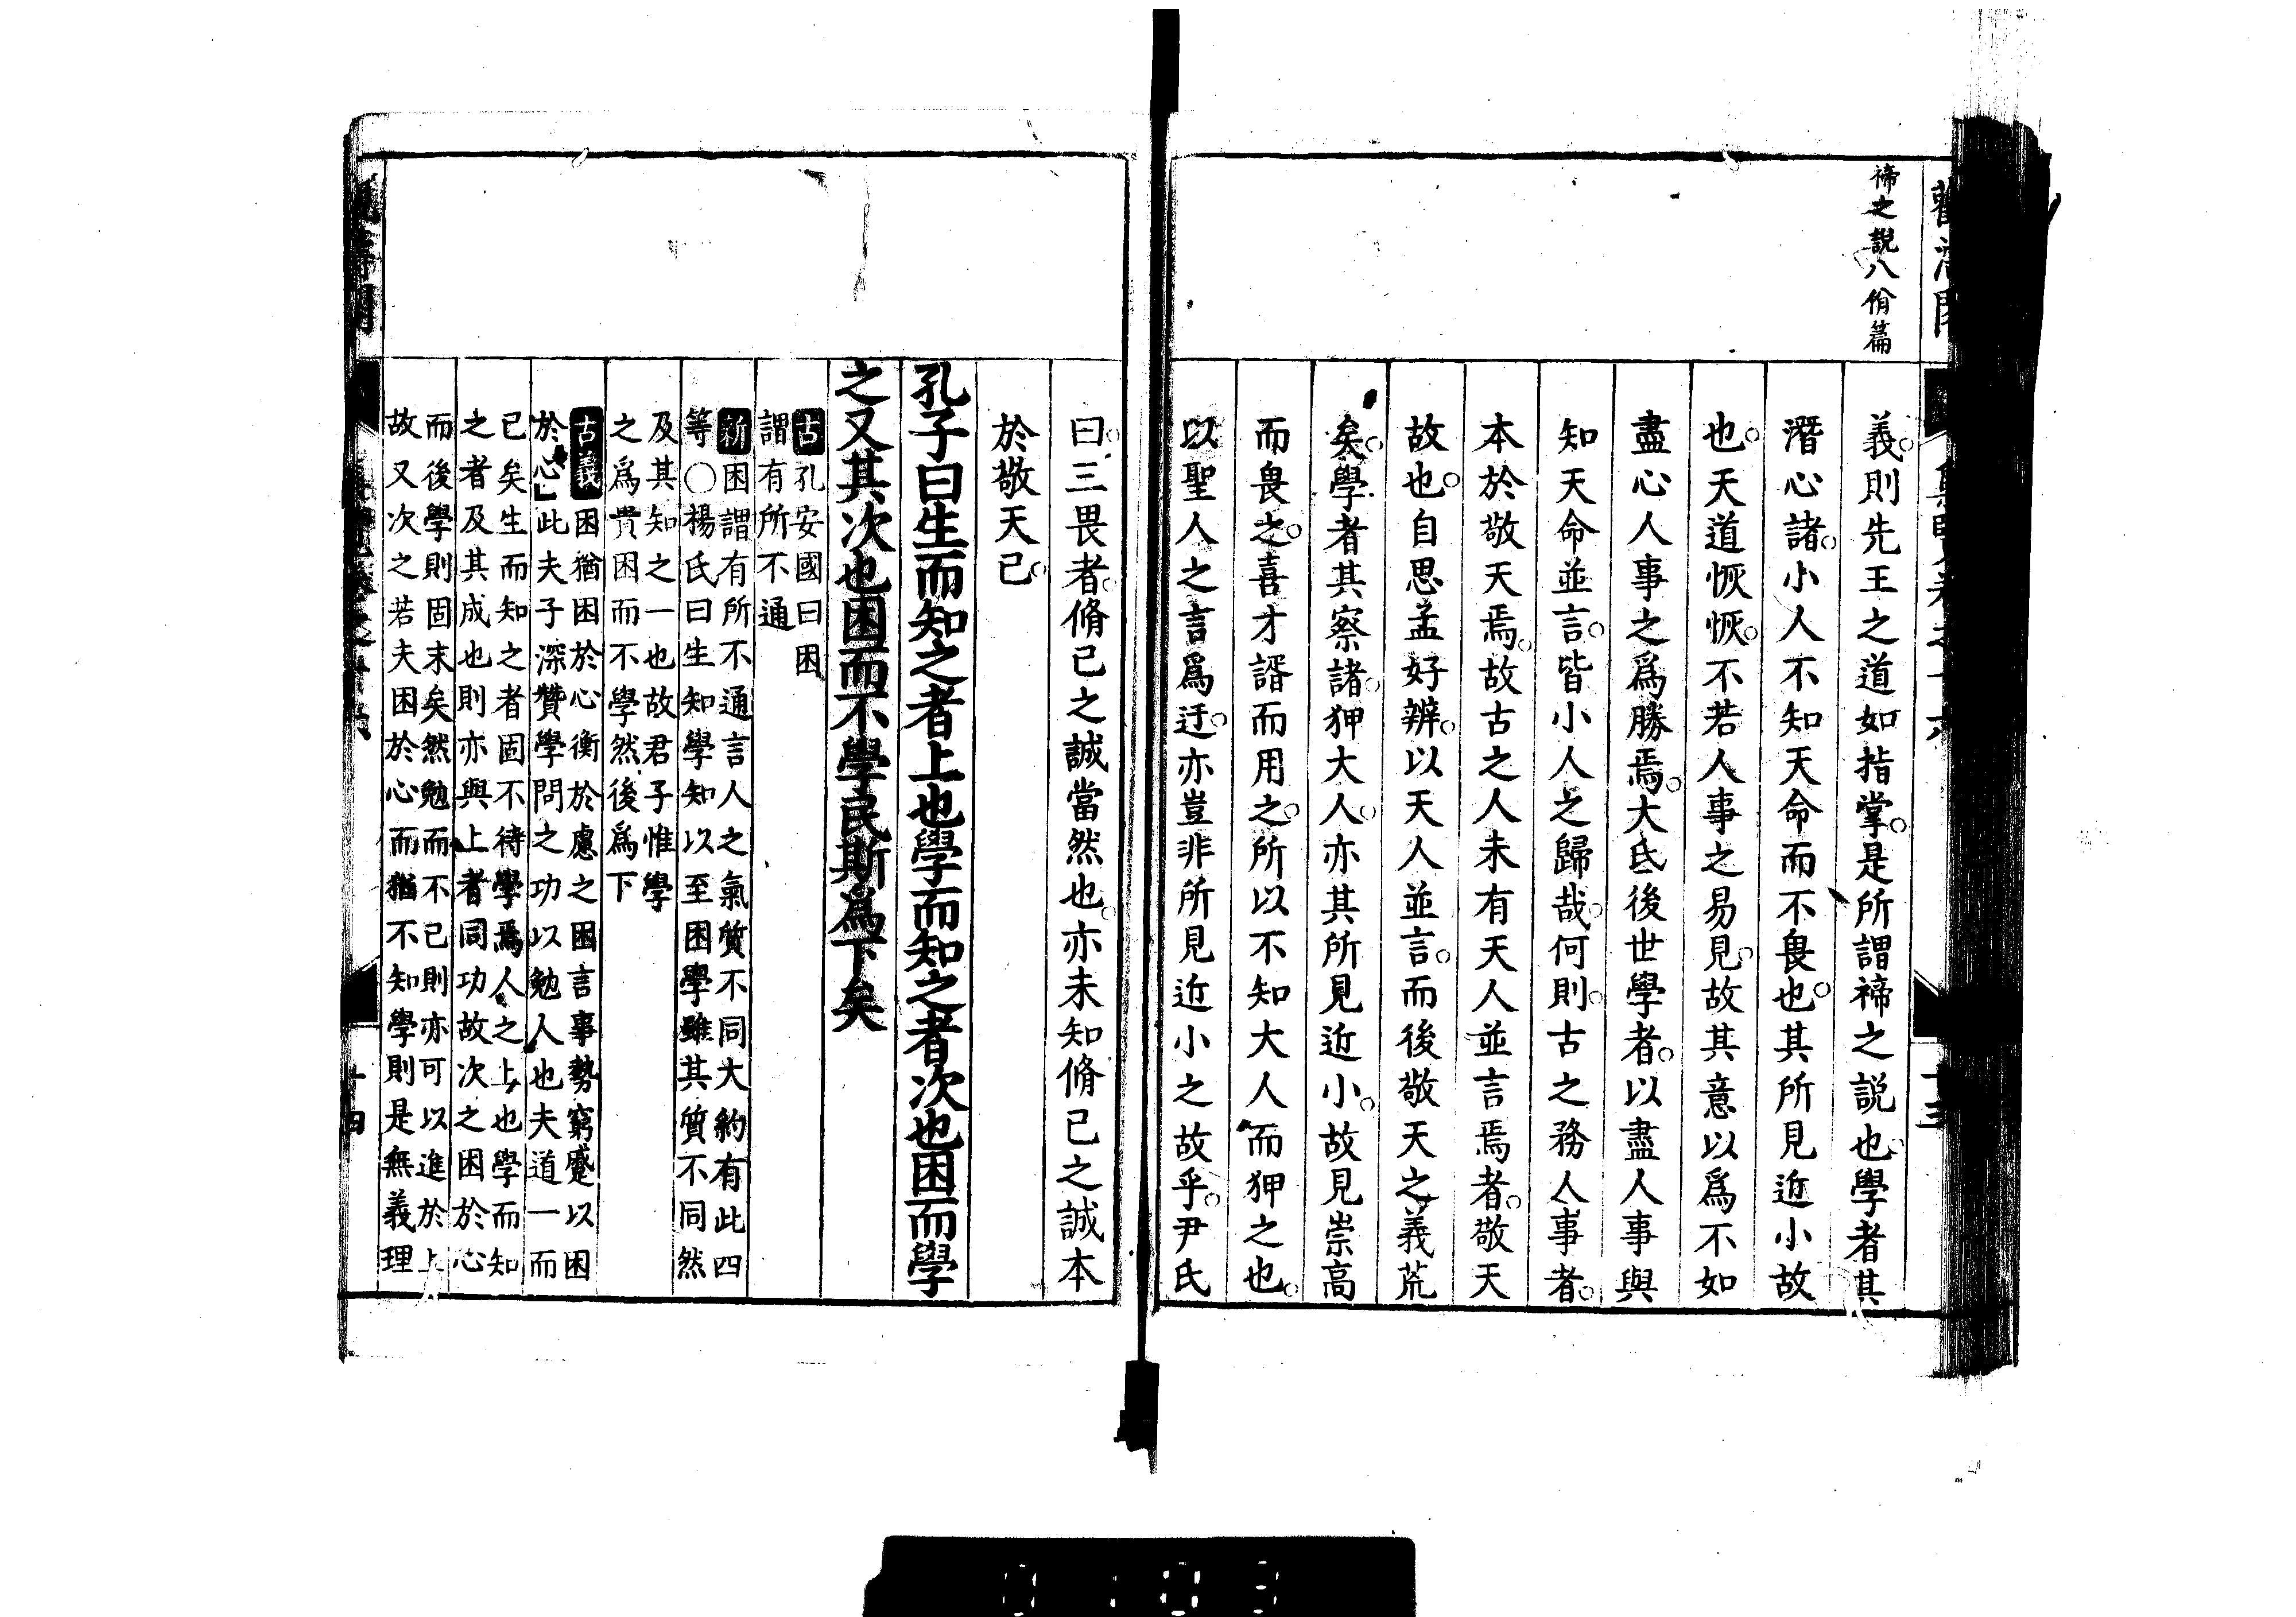 禘之說八佾篇
義。則先王之道如指掌。是所謂禘之説也。學者其
潛心諸。小人不知天命而不畏也。其所見近小故
也。天道恢恢。不若人事之易見。故其意以爲不如
盡心人事之爲勝焉。大氐後世學者。以盡人事與
知天命並言。皆小人之歸哉。何則。古之務人事者。
本於敬天焉。故古之人未有天人並言焉者。敬天
故也。自思孟好辨。以天人並言。而後敬天之義荒
矣。學者其察諸。狎大人。亦其所見近小。故見崇高
而畏之。喜才諝而用之。所以不知大人而狎之也。
以聖人之言爲迂。亦豈非所見近小之故乎。尹氏
曰。三畏者。脩己之誠當然也。亦未知脩己之誠本
於敬天已。
孔子曰生而知之者上也學而知之者次也困而學
之又其次也困而不學民斯爲下矣
古孔安國曰困
謂有所不通
新困謂有所不通言人之氣質不同大約有此四
等○楊氏曰生知學知以至困學雖其質不同然
及其知之一也故君子惟學
之爲貴困而不學然後爲下
古義困猶困於心衡於慮之困言事勢窮蹙以困
於心」此夫子深贊學問之功以勉人也夫道一而
已矣生而知之者固不待學焉人之上也學而知
之者及其成也則亦與上者同功故次之困於心
而後學則固末矣然勉而不已則亦可以進於上
故又次之若夫困於心而猶不知學則是無義理
十四
0103